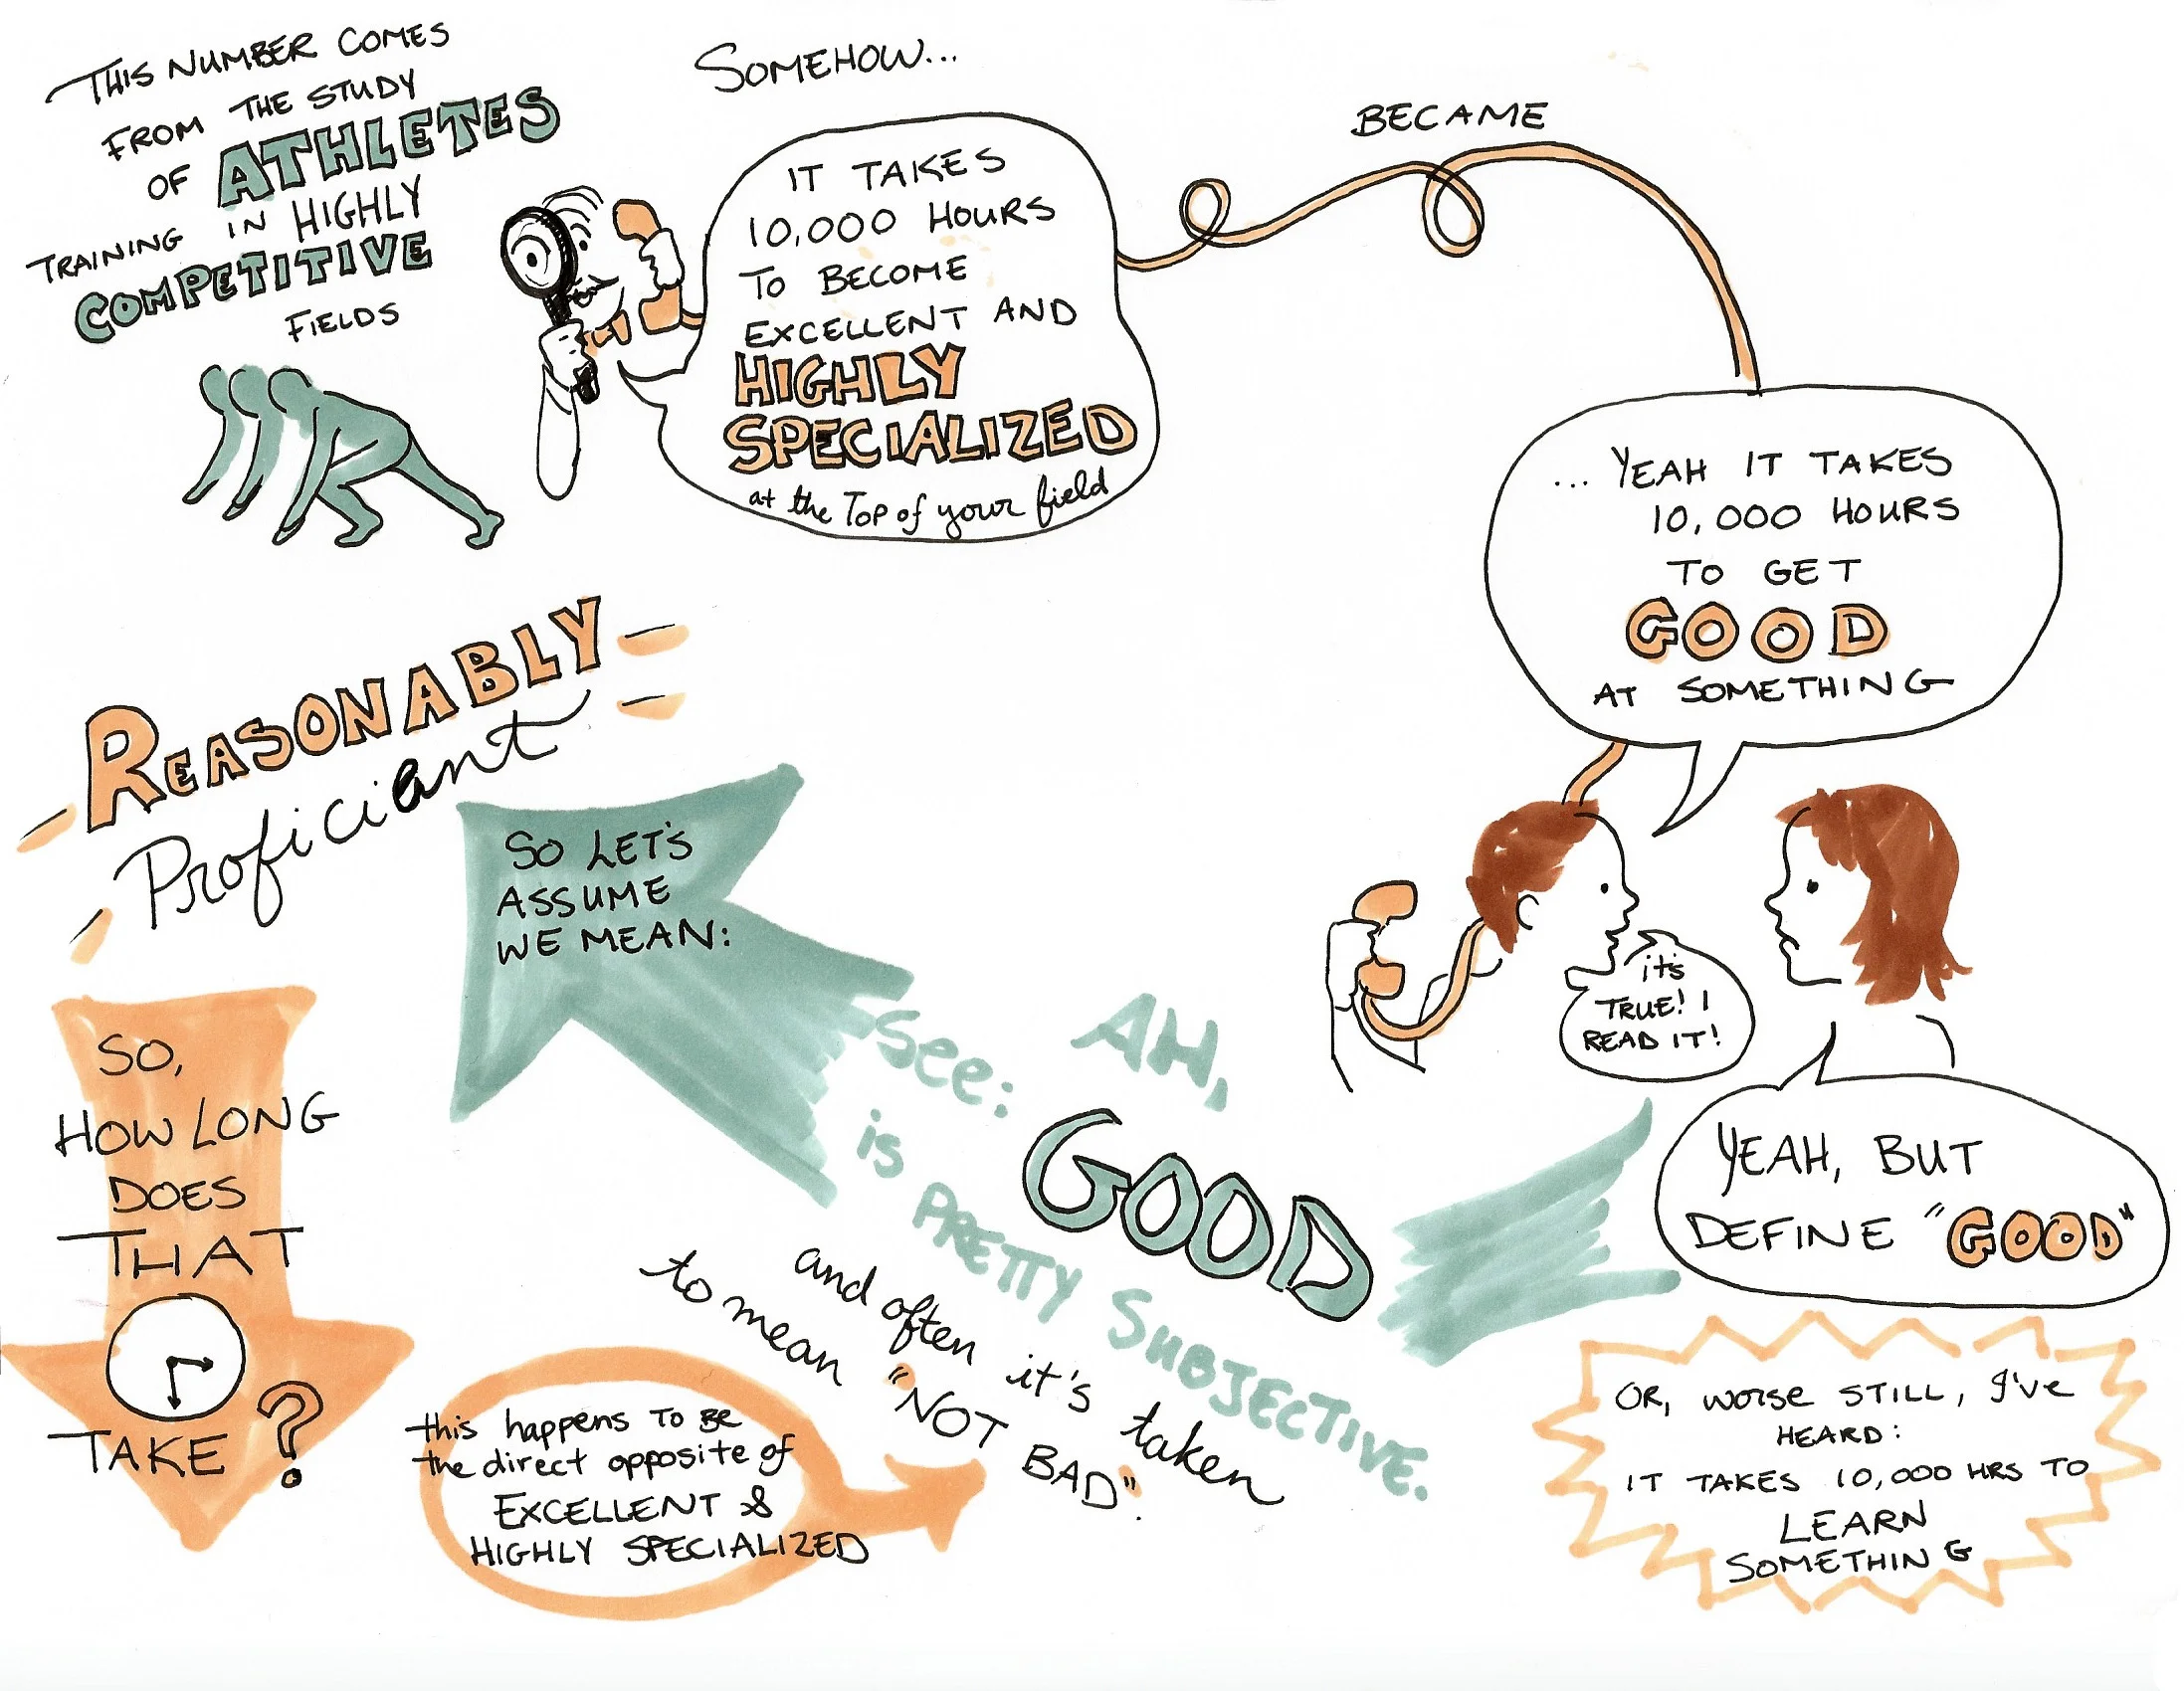 THIS NUMBER COMES
FROM THE STUDY
OF ATHLETES
TRAINING IN HIGHLY
COMPETITIVE
FIELDS
SOMEHOW...
IT TAKES
10,000 HOURS
TO BECOME
EXCELLENT AND
HIGHLY
SPECIALIZED
at the TOP of your field
BECAME
... YEAH IT TAKES
10,000 HOURS
TO GET
GOOD
AT SOMETHING
it's
TRUE! I
READ IT!
YEAH, BUT
DEFINE "GOOD"
OR, worse STILL, I've
HEARD:
IT TAKES 10,000 HRS TO
LEARN
SOMETHING
AH,
see:
GOOD
is PRETTY SUBJECTIVE.
and often it's taken
to mean "NOT BAD".
this happens TO BE
the direct opposite of
EXCELLENT &
HIGHLY SPECIALIZED
SO LET'S
ASSUME
WE MEAN:
REASONABLY
Proficiant
SO,
HOW LONG
DOES
THAT
TAKE ?